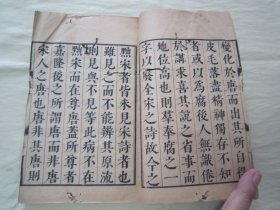 變化於唐而出其所自得
皮毛落盡精神獨存不知
者或以為腐後人無識倦
於講求喜其說之省事而
地位高也則羣奉腐之一
字以廢全宋之詩故今之
黜宋者皆未見宋詩者也
雖見之而不能辨其原流
則見與不見等此病不在
黜宋而在尊唐蓋所尊者
嘉隆後之所謂唐而非唐
宋人之唐也唐非其唐則